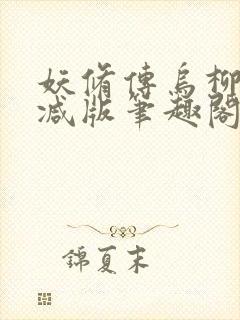 妖脩傳烏柳
減版筆趣閣
錦夏末